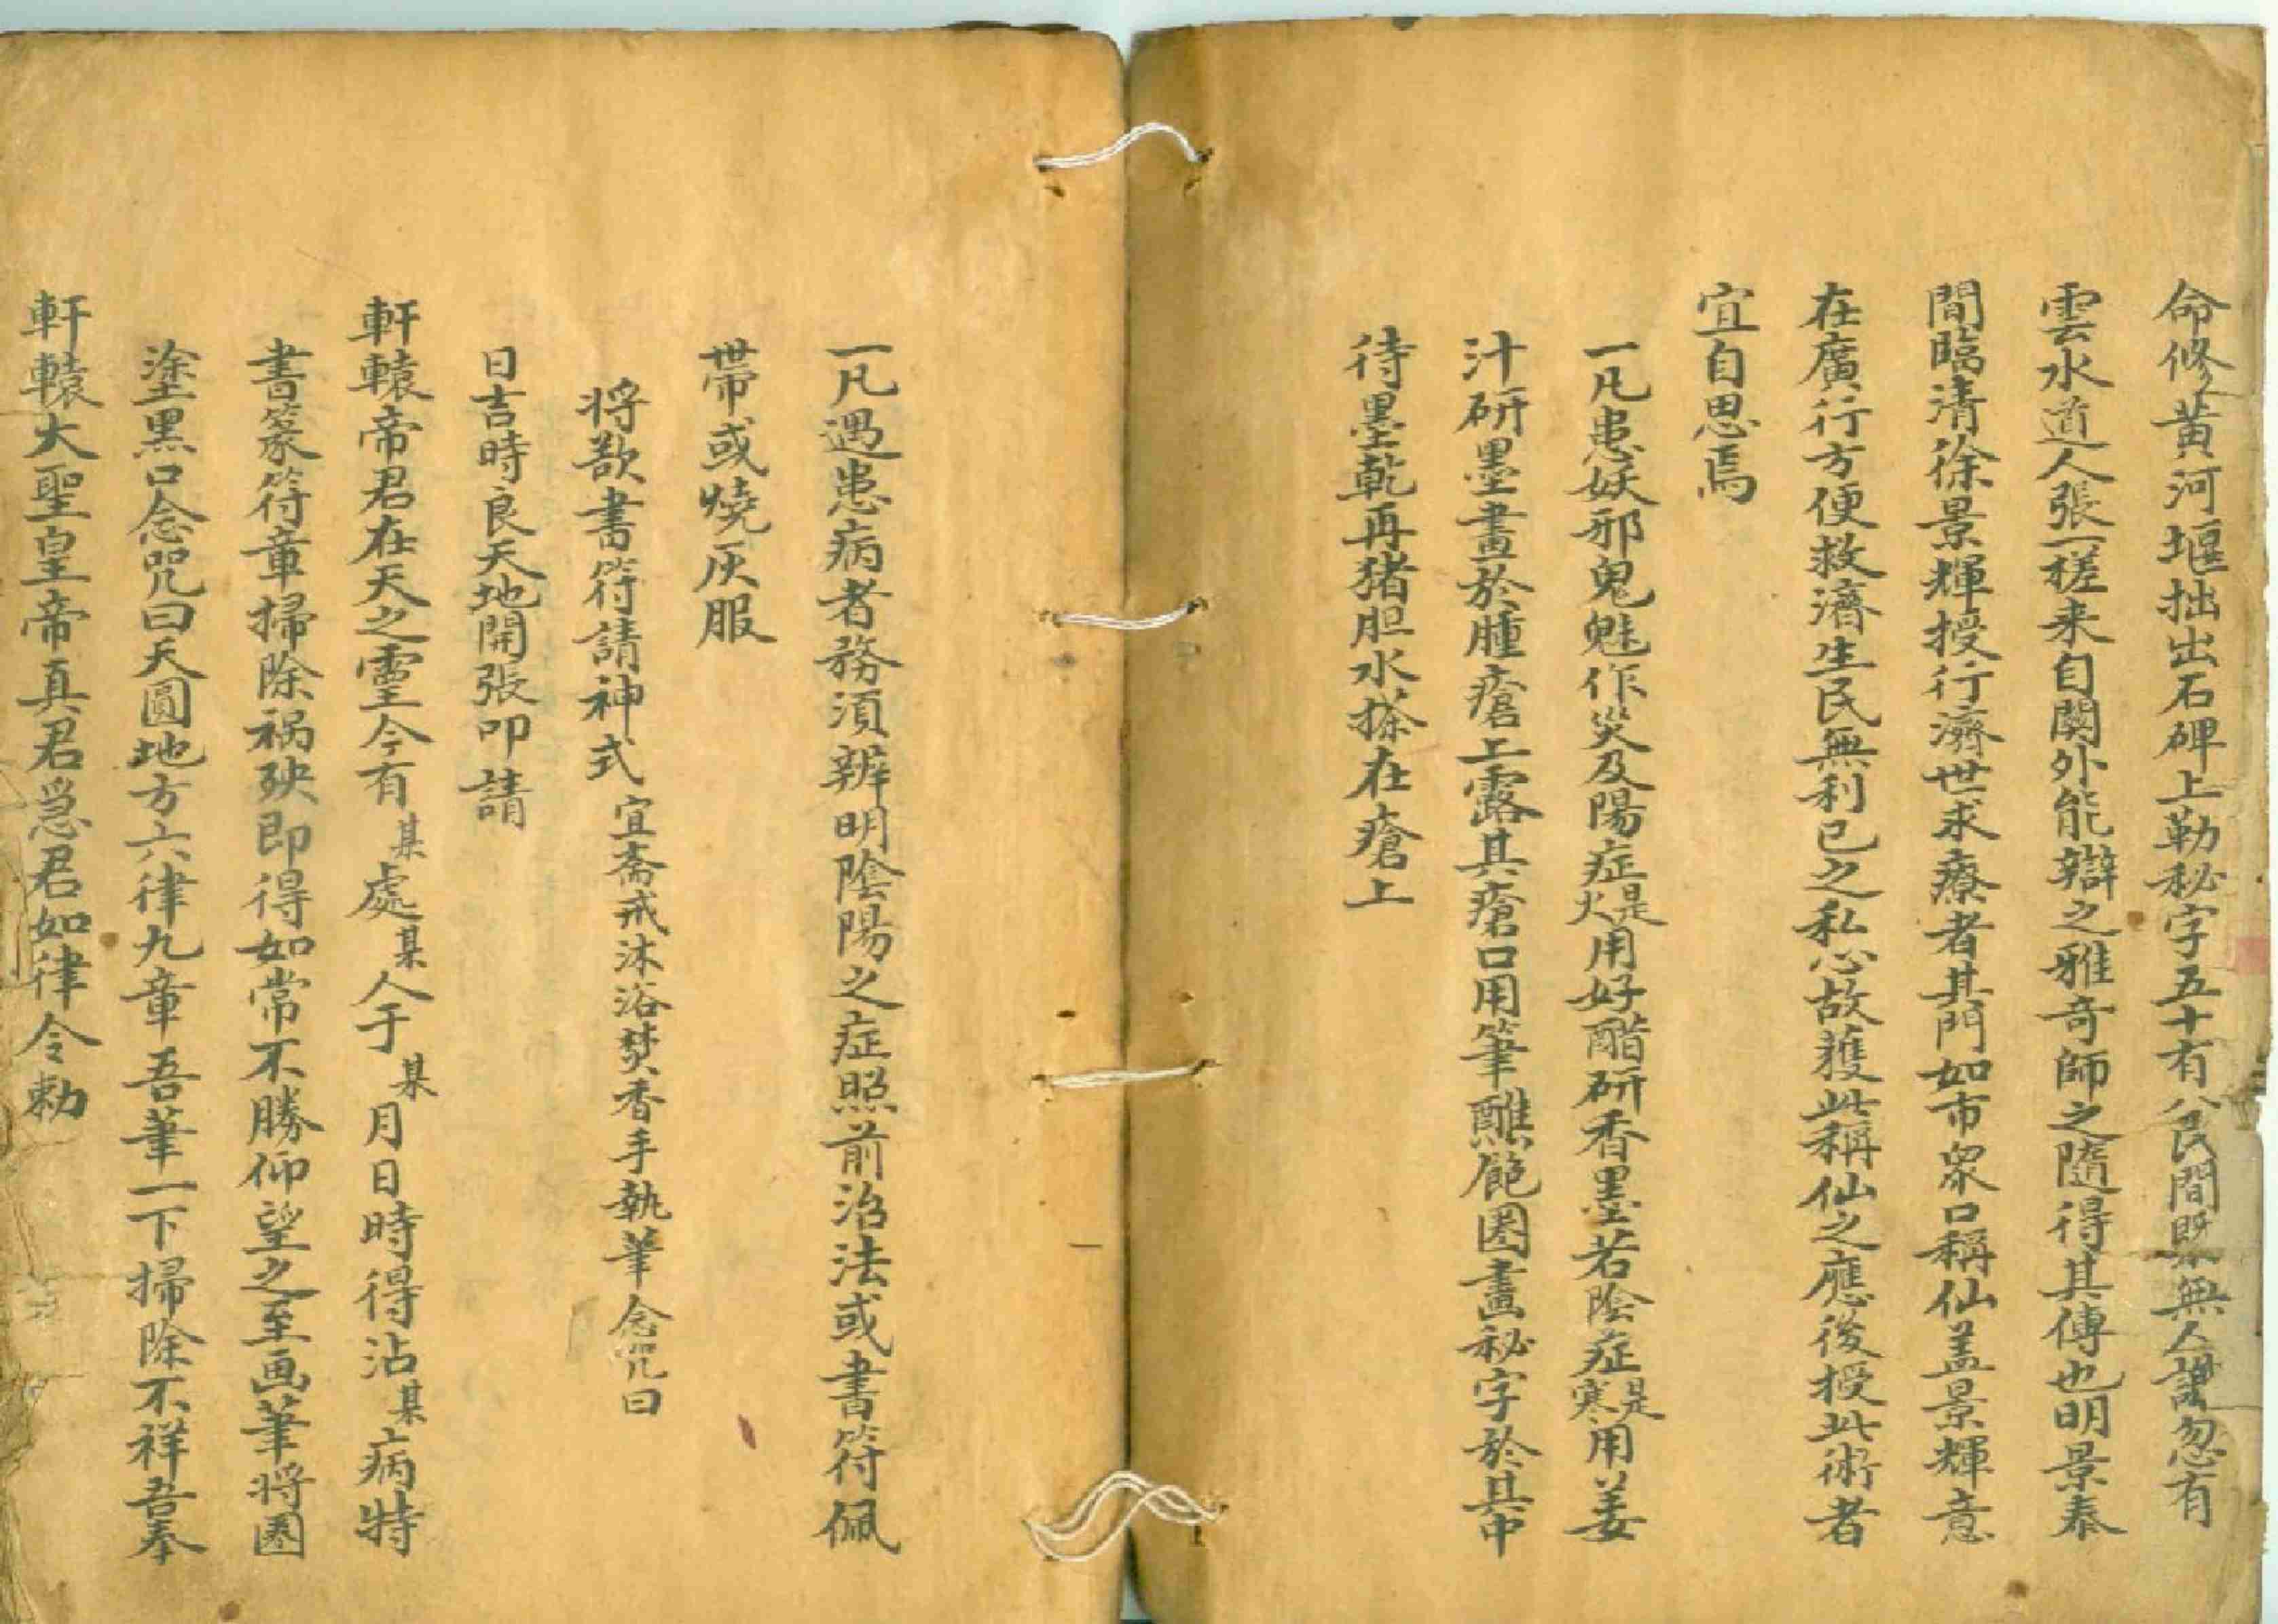 命修黃河堰拙出石碑上勒秘字五十有八民間既無人識忽有
雲水道人張一槎来自関外能辯之雅奇師之隨得其傳也明景泰
間臨清徐景輝授行濟世求療者其門如市眾口稱仙盖景輝意
在廣行方便救濟生民無利已之私心故獲此稱仙之應後授此術者
宜自思焉
一凡患妖邪鬼魅作災及陽症是火用好醋研香墨若陰症是寒用姜
汁研墨畫於腫瘡上露其瘡口用筆醮飽圏畫秘字於其中
待墨乾再猪胆水搽在瘡上
一凡遇患病者務須辨明陰陽之症照前治法或書符佩
帶或燒灰服
将欲書符請神式宜齋戒沐浴焚香手執筆念咒曰
日吉時良天地開張叩請
軒轅帝君在天之靈今有某處某人于某月日時得沾某病特
書篆符章掃除禍殃即得如常不勝仰望之至画筆将圏
塗黑口念咒曰天圓地方六律九章吾筆一下掃除不祥吾奉
軒轅大聖皇帝真君急君如律令勅